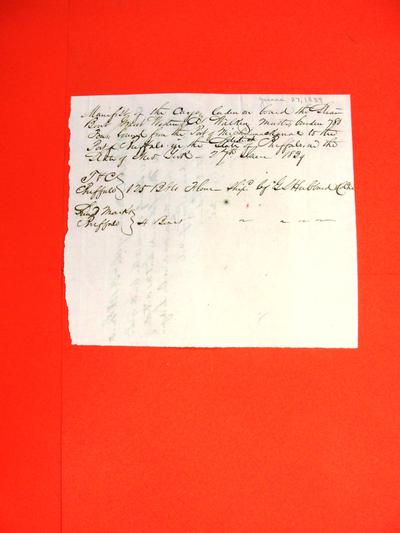 June 27, 1839
Manifest of the Cargo laden on board the Steam
Boat Great Western, Walker Master burden 780
Tons bound from the Port of Michilimackinac to the
Port of Buffalo in the State of Buffalo and the
State of New York - 27th June 1839
Buffalo } 125 Bbls Flour Ship'd by G S Hubbard
Marks
Buffalo } 4 Boxes " " "